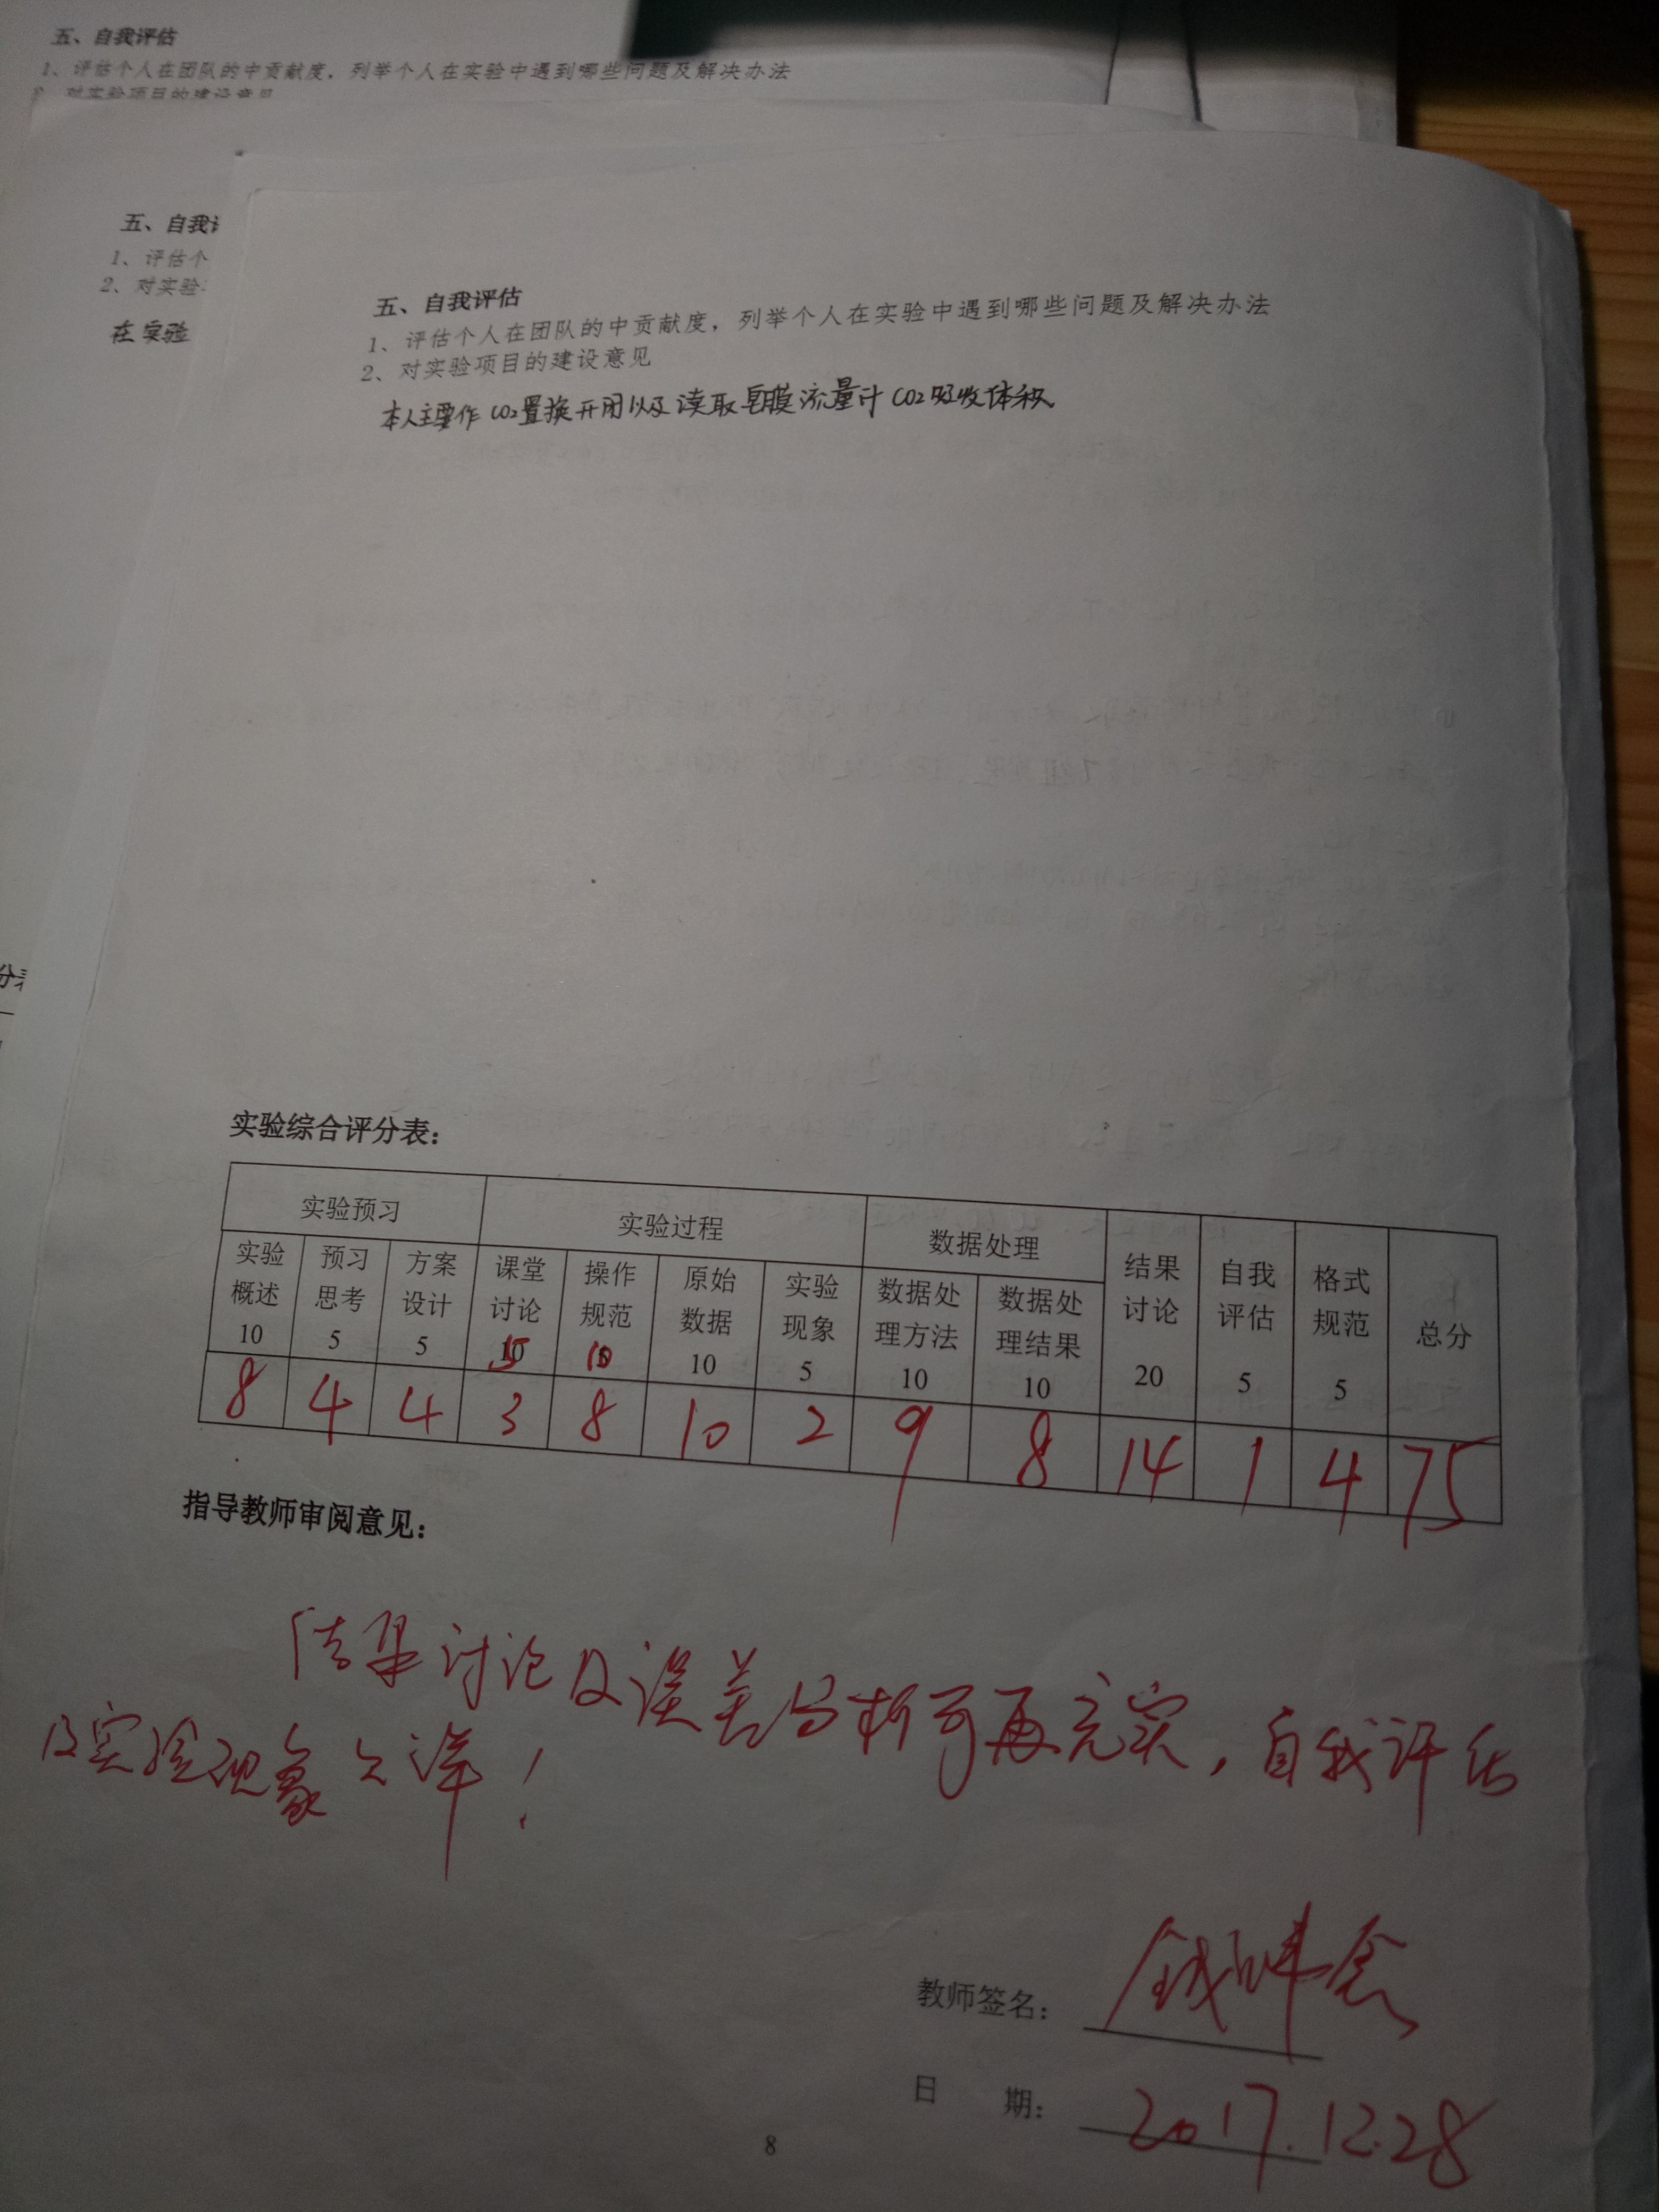 五、自我评估
1、评估个人在团队的中贡献度，列举个人在实验中遇到哪些问题及解决办法
2、对实验项目的建设意见
五、自我
1、评估个
2、对实验
在实验
五、自我评估
1、评估个人在团队的中贡献度，列举个人在实验中遇到哪些问题及解决办法
2、对实验项目的建设意见
本人主要作CO2置换开闭以及读取皂膜流量计CO2吸收体积
实验综合评分表：
实验预习 实验过程 数据处理 结果讨论 20 自我评估 5 格式规范 5 总分
实验概述 10 预习思考 5 方案设计 5 课堂讨论 5 操作规范 10 原始数据 10 实验现象 5 数据处理方法 10 数据处理结果 10
8 4 4 3 8 10 2 9 8 14 1 4 75
指导教师审阅意见：
结果讨论及误差分析可再充实，自我评估
及实验现象欠详！
教师签名：
日 期： 2017.12.28
8